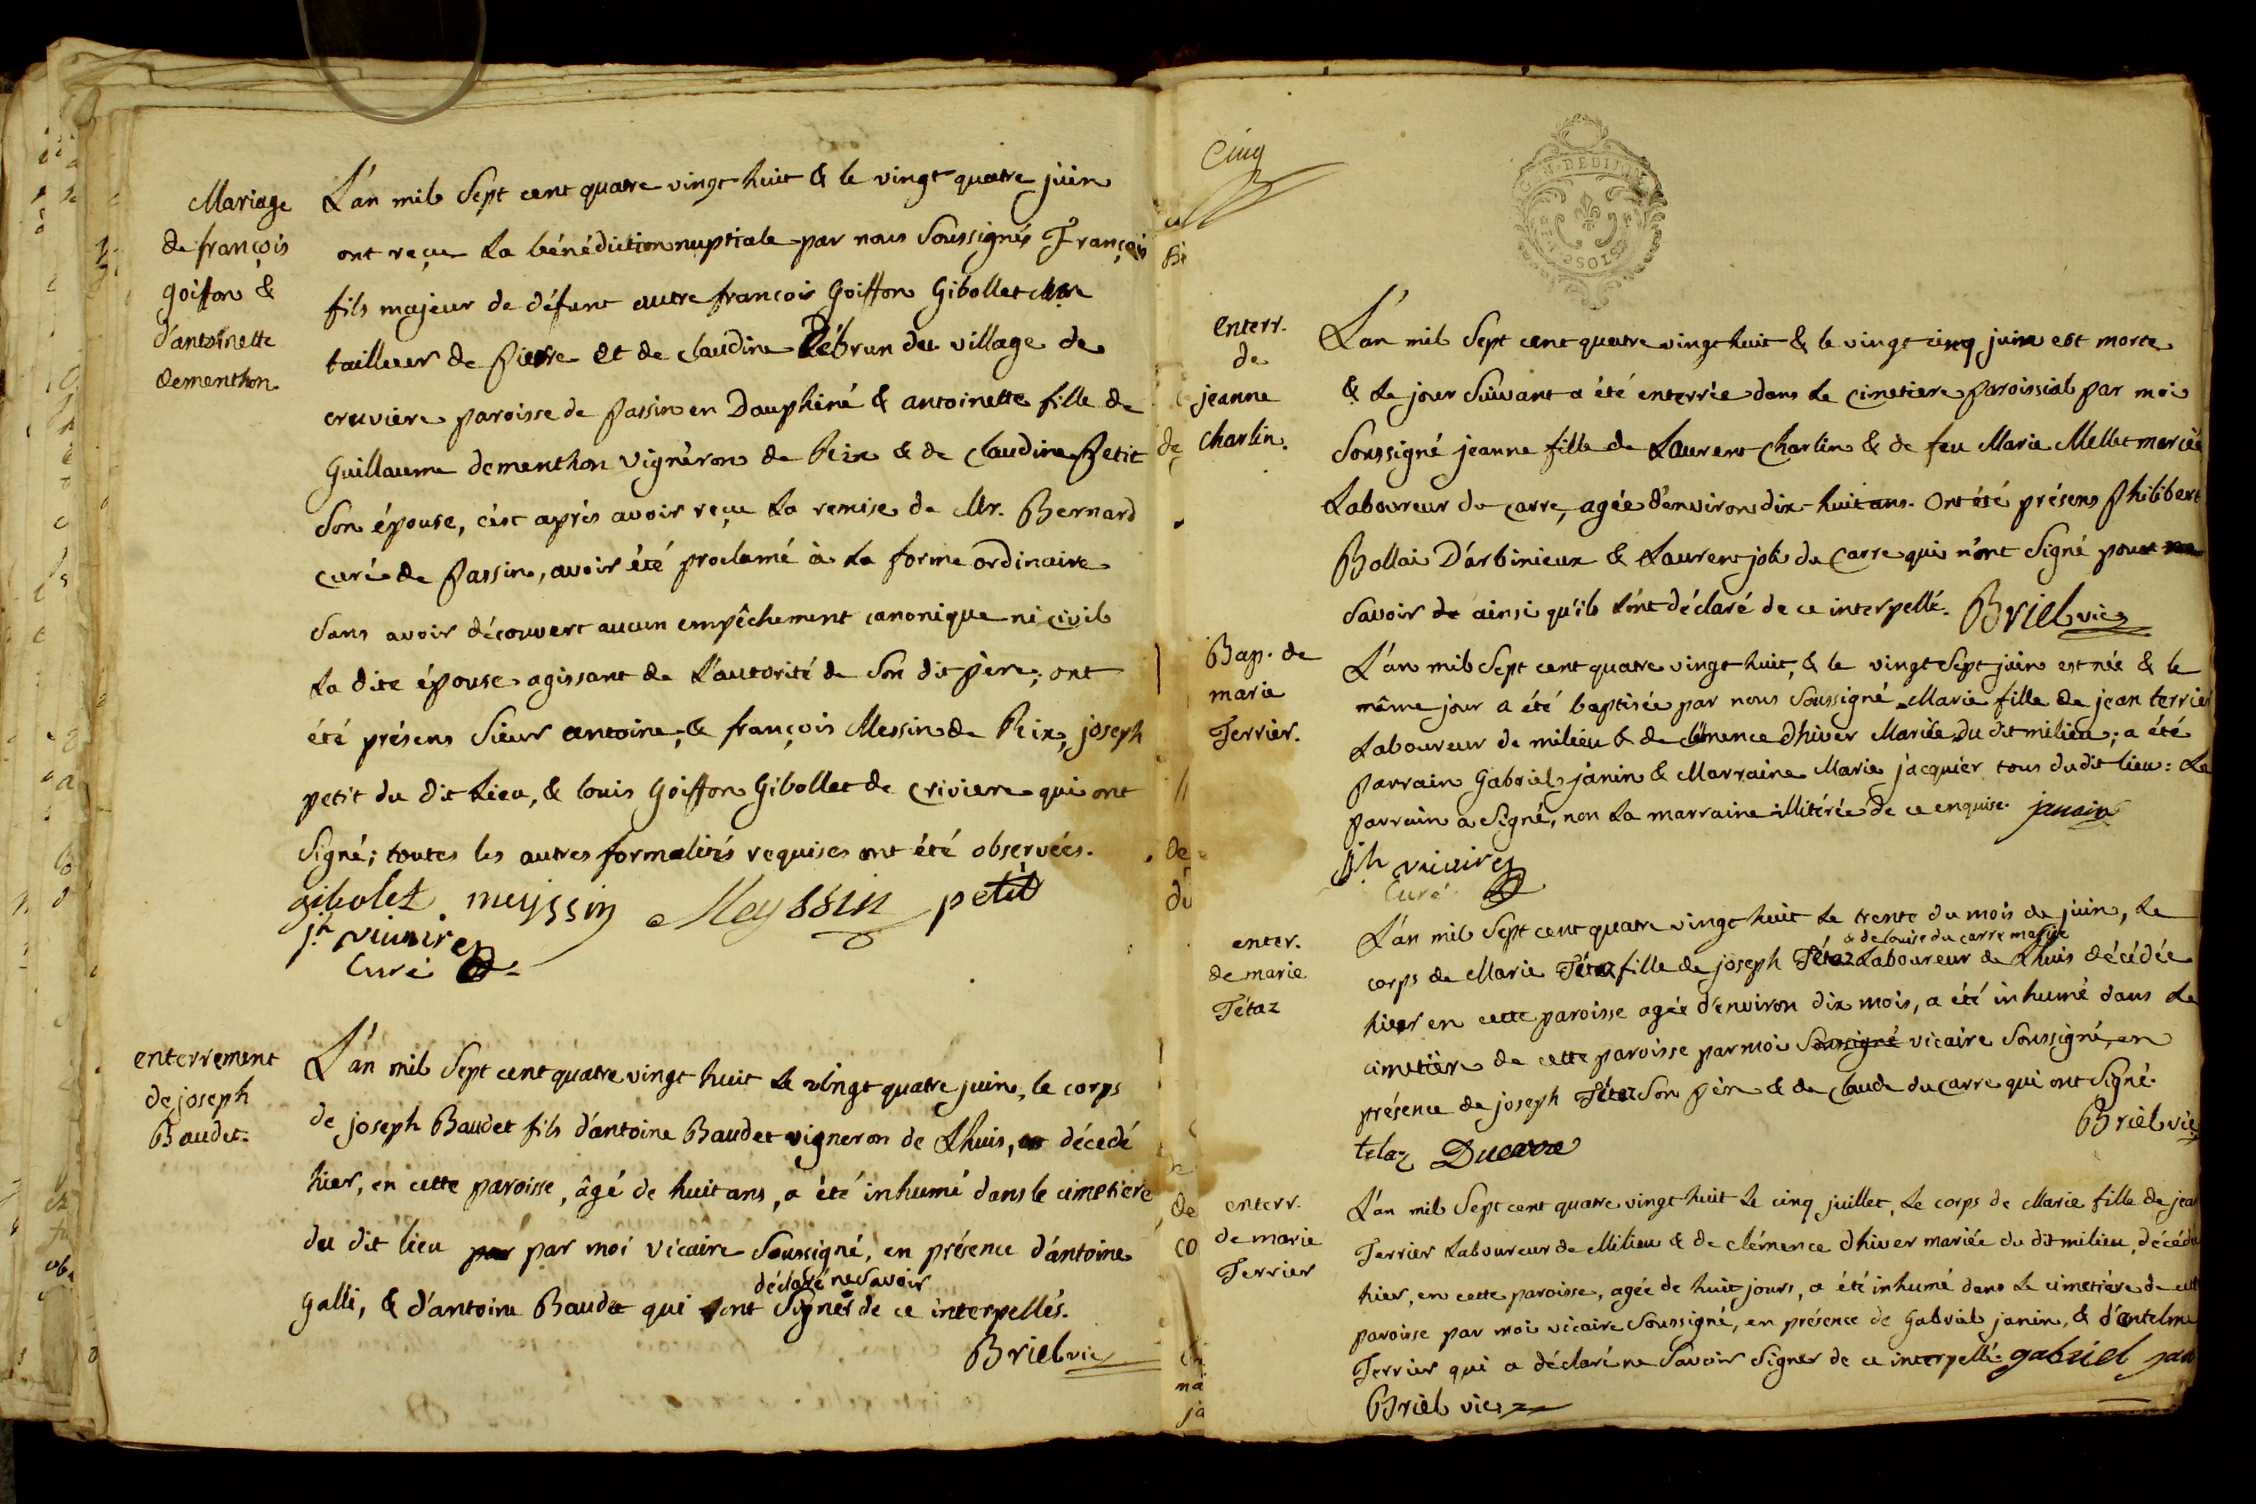 Mariage
de françois
goiffon &
d'antoinette
dementhon
L'an mil Sept cent quatre vingt huit & le vingt quatre juin
ont reçu la bénédiction nuptiale par nous Soussignés François
fils majeur de défunt autre françois Goiffon Gibollet
tailleur de pierre et de claudine Lébrun du village de
creuviere paroisse de passin en Dauphiné & antoinette fille de
Guillaume dementhon vigneron de Peix & de Claudine Petit
Son épouse, c'est après avoir reçu la remise de Mr. Bernard
curé de passin, avoir été proclamé à la forme ordinaire
Sans avoir découvert aucun empêchement canonique ni civil
la dite épouse agissant de l'autorité de Son dit père; ont
été présens Sieur antoine, & françois Messin de Peix, joseph
petit du dit lieu, & louis Goiffon Gibollet de criviere qui ont
Signé; toutes les autres formalités requises ont été observées.
gibolet meyssin Meyssin petit
jh
Curé
enterrement
de joseph
Baudet.
L'an mil Sept cent quatre vingt huit le vingt quatre juin, le corps
de joseph Baudet fils d'antoine Baudet vigneron de Lhuis, décedé
hier, en cette paroisse, âgé de huit ans, a été inhumé dans le cimetiere
du dit lieu par moi vicaire Soussigné, en présence d'antoine
déclaré ne Savoir
galli, & d'antoine Baudet qui ont Signer de ce interpellés.
Briel vic
Cinq
G. N. DE DIJON
2 SOIS
enterr.
de
jeanne
charlin.
L'an mil Sept cent quatre vingt huit & le vingt cinq juin est morte
& le jour Suivant a été enterrée dans le cimetiere paroissial par moi
Soussigné jeanne fille de Laurent Charlin & de feu Marie Mellet mariée
Laboureur du carre, agée d'environ dix-huit ans. Ont été présens Philibert
Bollai D'arbinieux & Laurent joli du Carre qui n'ont Signé pour
Savoir de ainsi qu'ils l'ont déclaré de ce interpellé. Briel vic
Bap. de
marie
Terrier.
L'an mil Sept cent quatre vingt huit, & le vingt Sept juin est née & le
même jour a été baptisée par nous Soussigné Marie fille de jean terrier
Laboureur de milieu & de clémence dhiver Mariée du dit milieu; a été
parrain Gabriel janin & Marraine Marie jacquier tous du dit lieu: Le
parrain a Signé, non la marraine illitérée de ce enquise. janain
jh
Curé
enter.
de marie
Tétaz
L'an mil Sept cent quatre vingt huit le trente du mois de juin, le
& de louise du carre mariée
corps de Marie Tétaz fille de joseph Tétaz Laboureur de Lhuis décédée
hier en cette paroisse agée d'environ dix mois, a été inhumé dans le
cimetière de cette paroisse par moi Soussigné vicaire Soussigné, en
présence de joseph Tétaz Son père & de Claude du Carre qui ont Signé.
Briel vic
tetaz Ducarre
enterr.
de marie
Terrier
L'an mil Sept cent quatre vingt huit le cinq juillet, le corps de Marie fille de jean
Terrier Laboureur de Milieu & de clémence dhiver mariée du dit milieu, décédée
hier, en cette paroisse, agée de huit jours, a été inhumé dans le cimetière de cette
paroisse par moi vicaire Soussigné, en présence de Gabriel janin, & d'antelme
Terrier qui a déclaré ne Savoir Signer de ce interpellé. gabriel jan
Briel vic